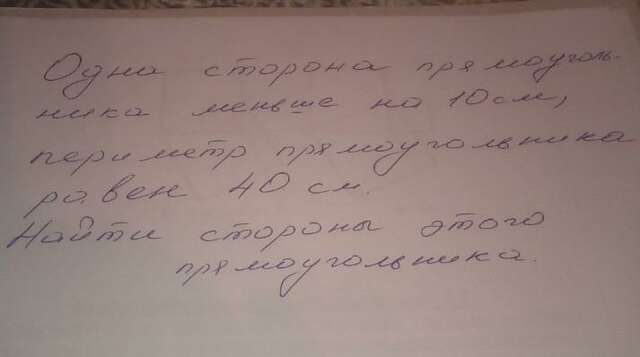 Одна сторона прямоуголь-
ника меньше на 10 см,
периметр прямоугольника
равен 40 см.
Найти стороны этого
прямоугольника.